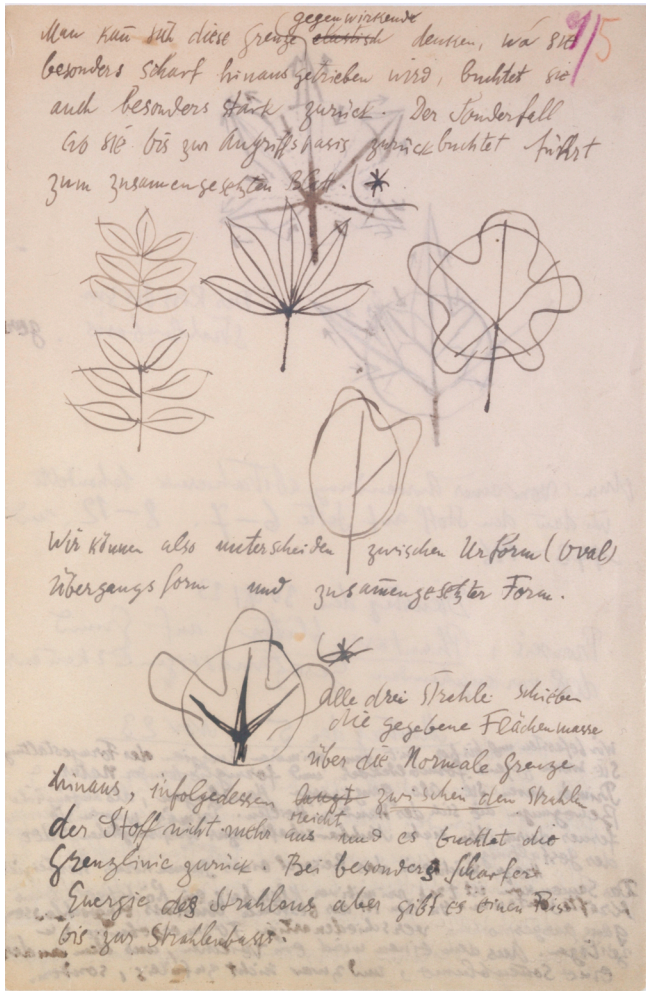 gegenwirkende
Man kann sich diese Grenze elastisch denken, wo sie 9/5
besonders scharf hinausgetrieben wird, buchtet sie
auch besonders stark zurück. Der Sonderfall
wo sie bis zur Angriffsbasis zurückbuchtet führt
zum zusamengesetzten Blatt.
Wir können also unterscheiden zwischen Urform (Oval)
übergangsform und zusamengesetzter Form.
alle drei Strahle schieben
die gegebene Flächenmasse
über die Normale Grenze
hinaus, infolgedessen langt zwischen den Strahlen
reicht
der Stoff nicht mehr aus und es buchtet die
Grenzlinie zurück. Bei besonders scharfer
Energie des Strahlens aber gibt es einen
bis zur Strahlenbasis.